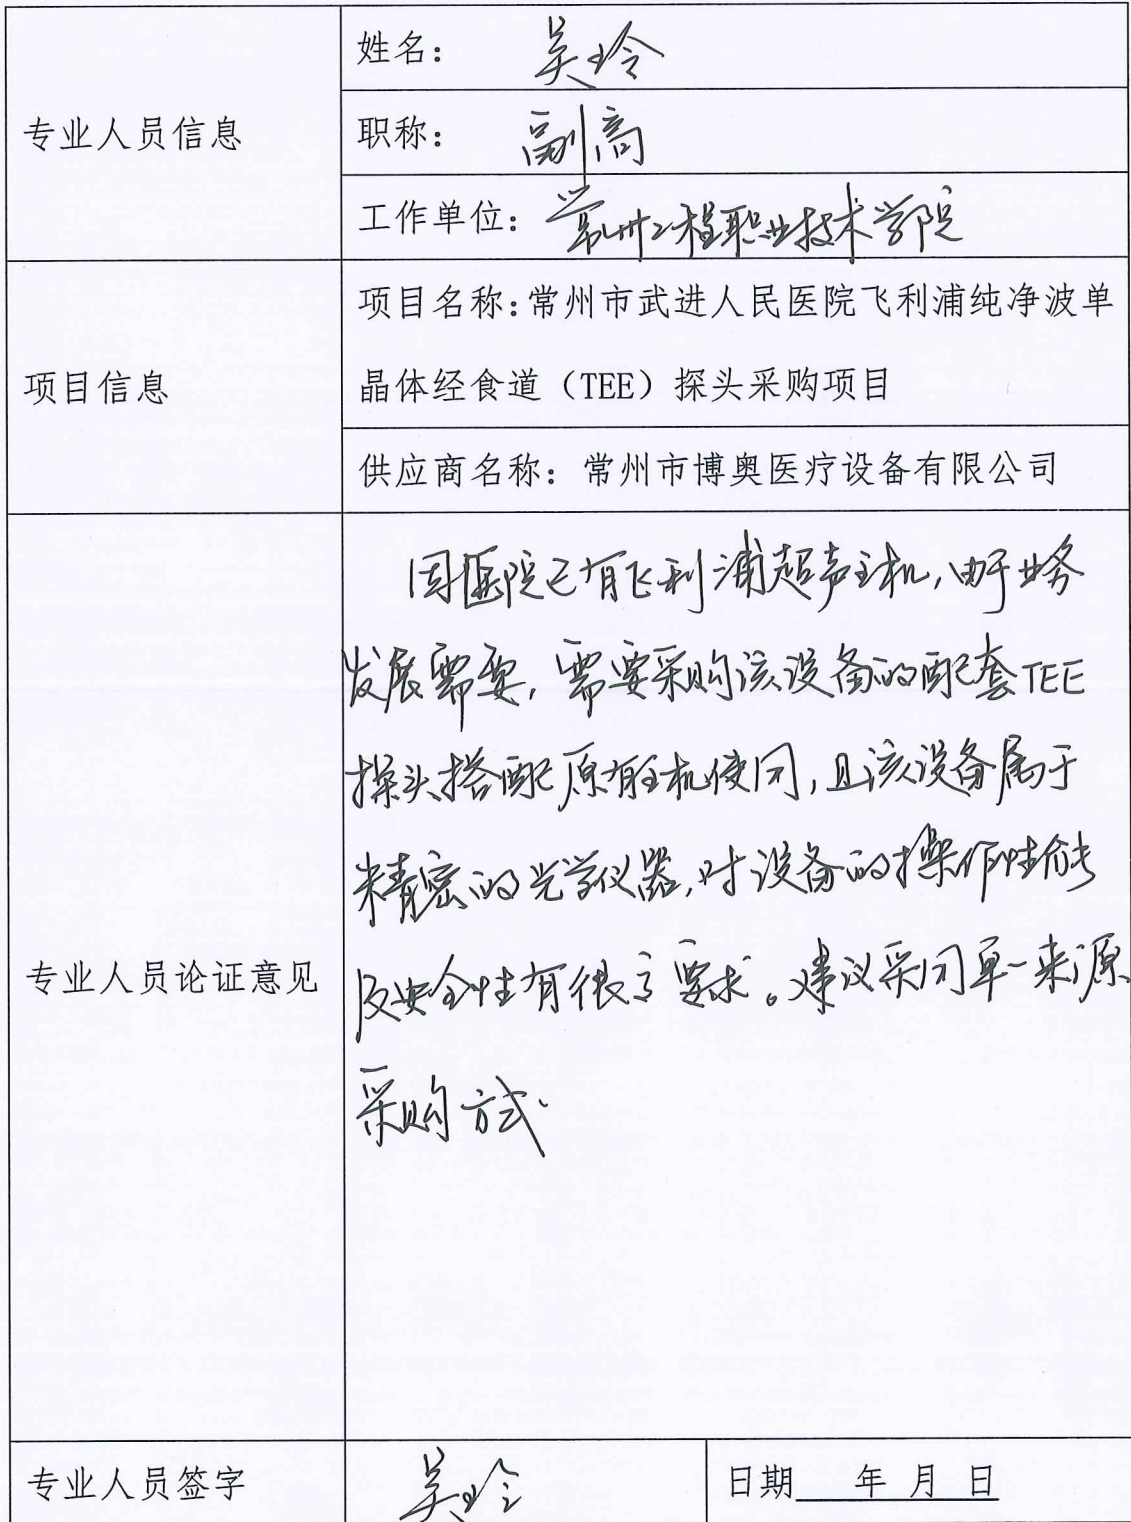 专业人员信息
姓名: 吴玲
职称: 副高
工作单位: 常州工程职业技术学院
项目信息
项目名称:常州市武进人民医院飞利浦纯净波单
晶体经食道（TEE）探头采购项目
供应商名称: 常州市博奥医疗设备有限公司
专业人员论证意见
因医院已有飞利浦超声主机,由于业务
发展需要,需要采购该设备的配套TEE
探头搭配原有主机使用,且该设备属于
精密的光学仪器,对设备的操作性能
及安全性有很高要求。建议采用单一来源
采购方式.
专业人员签字
吴玲
日期 年 月 日